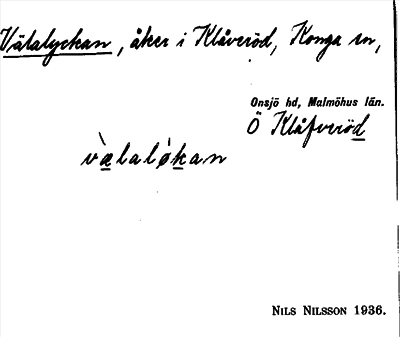 Välalyckan, åker i Klåveröd, Konga sn,
Onsjö hd, Malmöhus län.
Ö Klåfveröd
v&#x00E6;̀lalǿkan
NILS NILSSON 1936.